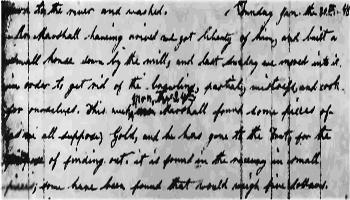 down to the river and washed. Sunday Jan. the 30th - 48
Mr Marshall having arived we got liberty of him, and built a
small house down by the mill, and last Sunday we moved into it
in order to get rid of the brawling, partial, mistress, and cook
for ourselves. This week Mon. the 24th Mr Marshall found some pieces of
(as we all suppose) Gold, and he has gone to the Fort, for the
purpose of finding out. it is found in the raceway in small
pieces; some have been found that would weigh five dollars.